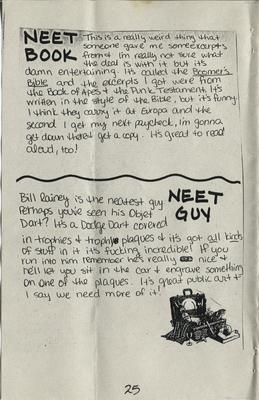 NEET BOOK
This is a really weird thing that
someone gave me some excerpts
from & I'm really not sure what
the deal is with it but it's
damn entertaining. It's called the Boomer's
Bible and the excerpts I got were from
the Book of Apes & the Punk Testament. It's
written in the style of the Bible, but it's funny.
I think they carry it at Europa and the
second I get my next paycheck, I'm gonna
get down there & get a copy. It's great to read
aloud, too!
NEET GUY
Bill Rainey is the neatest guy.
Perhaps you've seen his Objet
Dart? It's a Dodge Dart covered
in trophies & trophy plaques & it's got all kinds
of stuff in it it's fucking incredible! If you
run into him remember he's really nice &
he'll let you sit in the car & engrave something
on one of the plaques. It's great public art &
I say we need more of it!
25